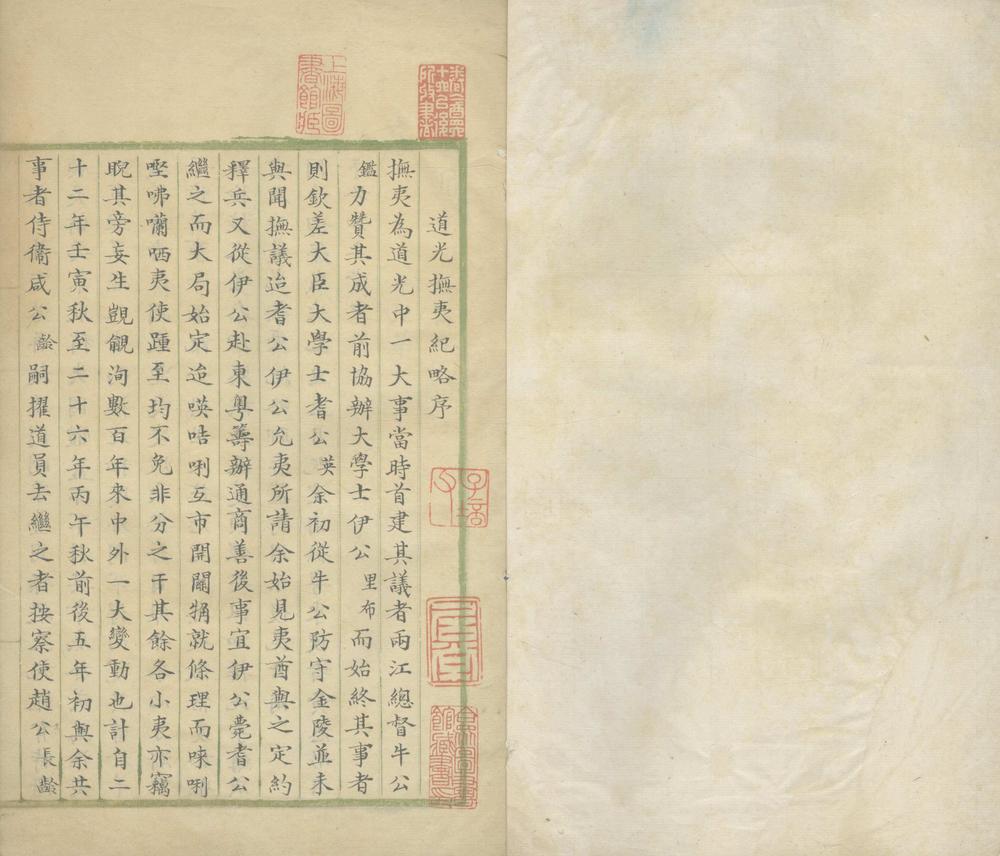 道光撫夷紀略序
撫夷為道光中一大事當時首建其議者兩江總督牛公
鑑力贊其成者前協辦大學士伊公里布而始終其事者
則欽差大臣大學士耆公英余初從牛公防守金陵並未
與聞撫議迨耆公伊公允夷所請余始見夷酋與之定約
釋兵又從伊公赴東粵籌辦通商善後事宜伊公薨耆公
繼之而大局始定迨𠸄咭唎互市開關犕就條理而㖨唎
㗌咈囒哂夷使踵至均不免非分之干其餘各小夷亦竊
睨其旁妄生覬覦洵數百年來中外一大變動也計自二
十二年壬寅秋至二十六年丙午秋前後五年初與余共
事者侍衞咸公齡嗣擢道員去繼之者按察使趙公長齡
上海圖書館藏